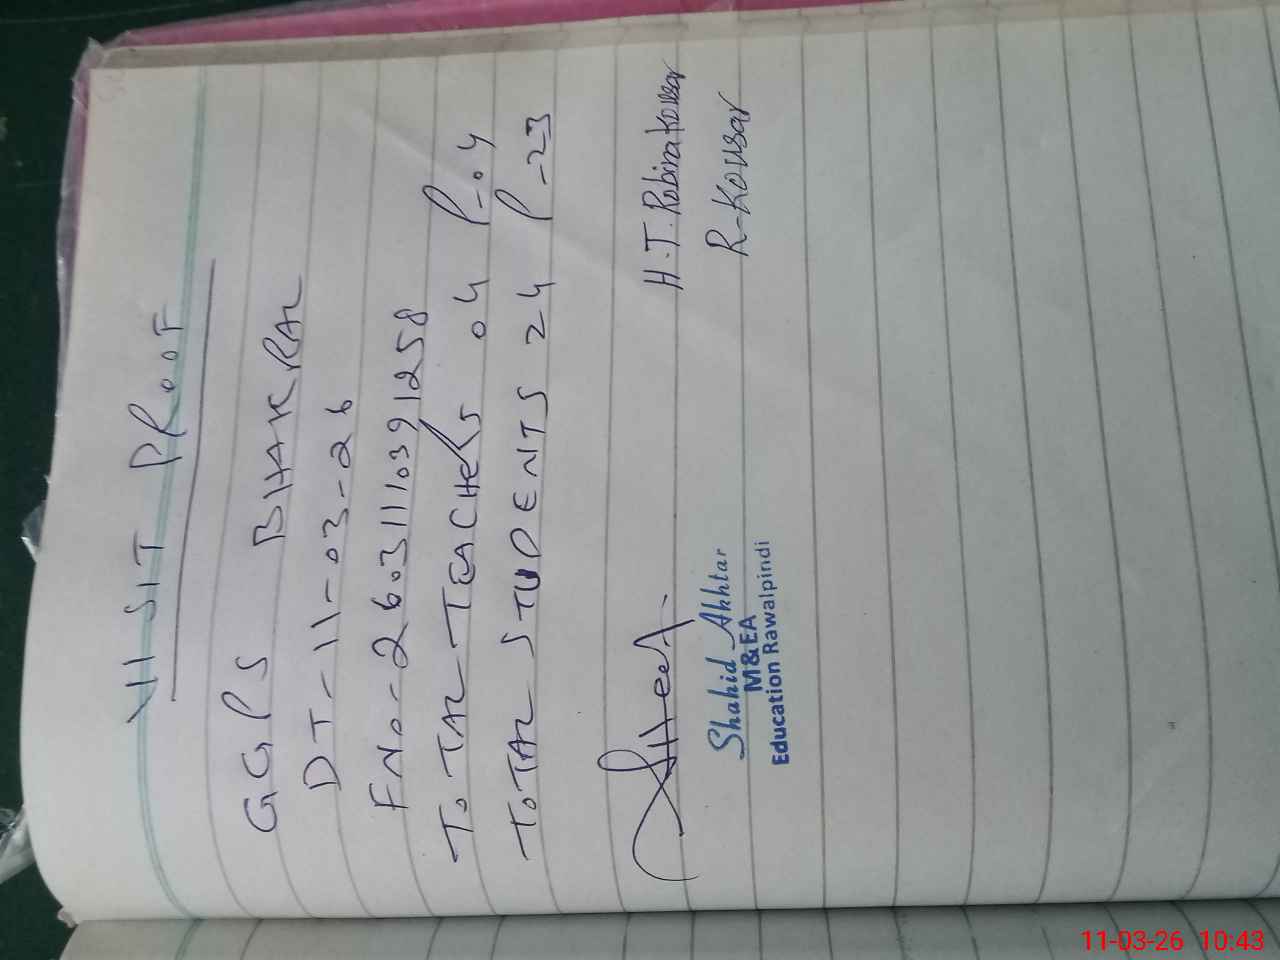 VISIT PROOF
GGPS BHAKRAL
DT-11-03-26
FNO-26031110391258
TOTAL-TEACHERS 04 P-04
TOTAL STUDENTS 24 P-23
H.T. Robina Kousar
R-Kousar
Shahid Akhtar
M&EA
Education Rawalpindi
11-03-26 10:43